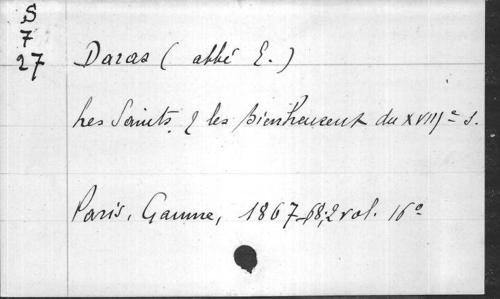 S
7
27
Daras (abbé E.)
Les Saints & les bienheureux du XVIIIe s.
Paris, Gaume, 1867-68; 2 vol. 16º